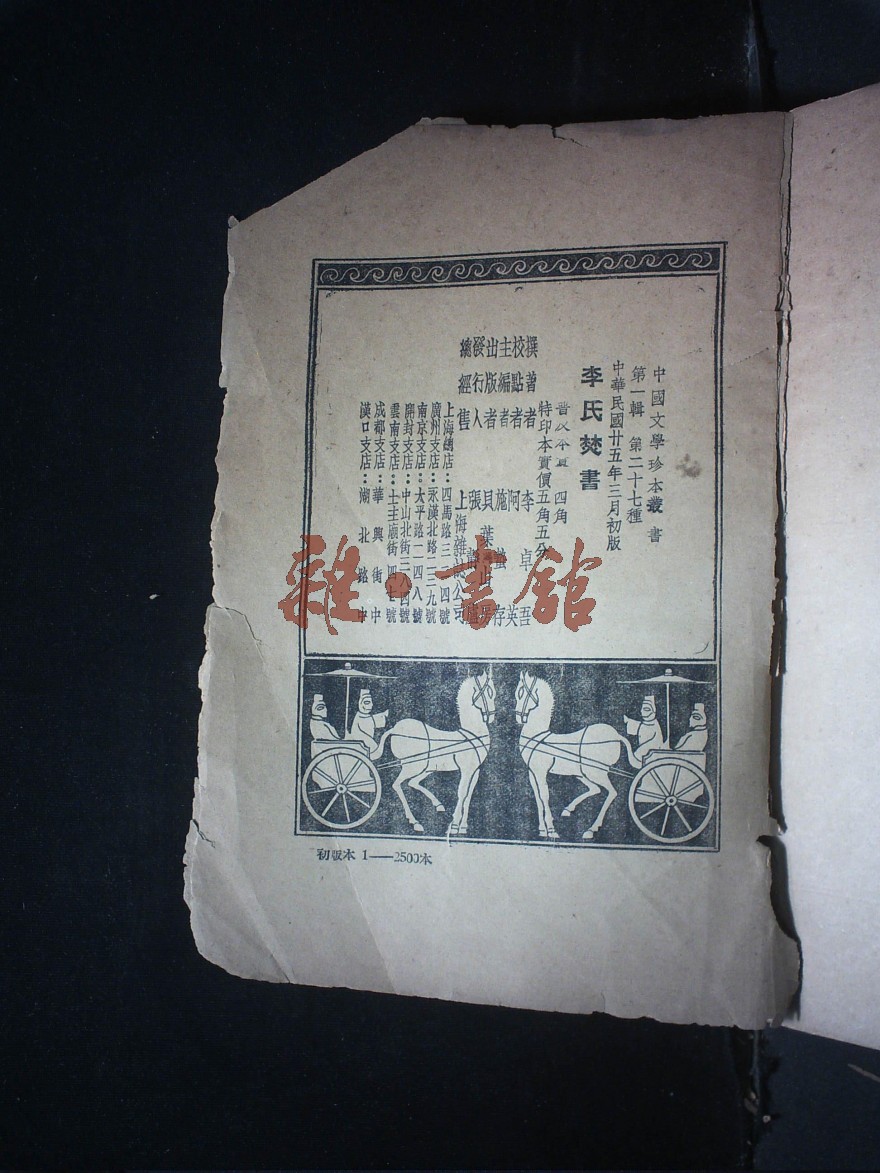 中國文學珍本叢書
第一輯 第二十七種
中華民國廿五年三月初版
李氏焚書
普及本實價 四角
特印本實價五角五分
撰著者 李卓吾
校點者 阿英
主編者 施蟄存
出版者 貝葉山房
發行人 張
總經售 上海雜誌公司
上海總店：四馬路三二四號
廣州支店：永漢北路一三九號
南京支店：太平路二四八號
開封支店：中山北街三八四號
雲南支店：土主廟街四七號
成都支店：華興街中
漢口支店：湖北路中
初版本 1——2500本
雜·書館